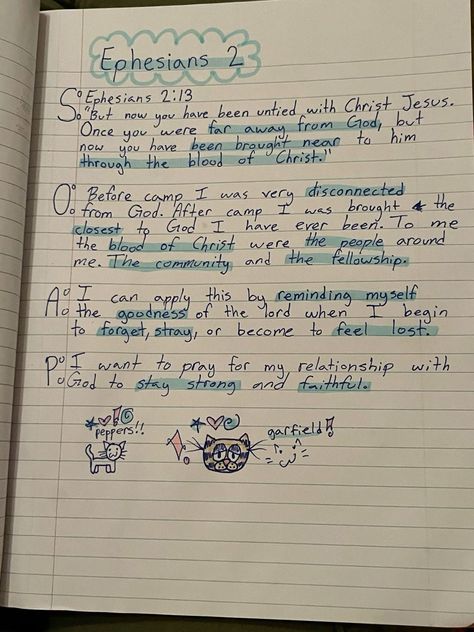 Ephesians 2
S: Ephesians 2:13
"But now you have been untied with Christ Jesus.
Once you were far away from God, but
now you have been brought near to him
through the blood of Christ."
O: Before camp I was very disconnected
from God. After camp I was brought the
closest to God I have ever been. To me
the blood of Christ were the people around
me. The community and the fellowship.
A: I can apply this by reminding myself
the goodness of the lord when I begin
to forget, stray, or become to feel lost.
P: I want to pray for my relationship with
God to stay strong and faithful.
peppers!!
garfield!